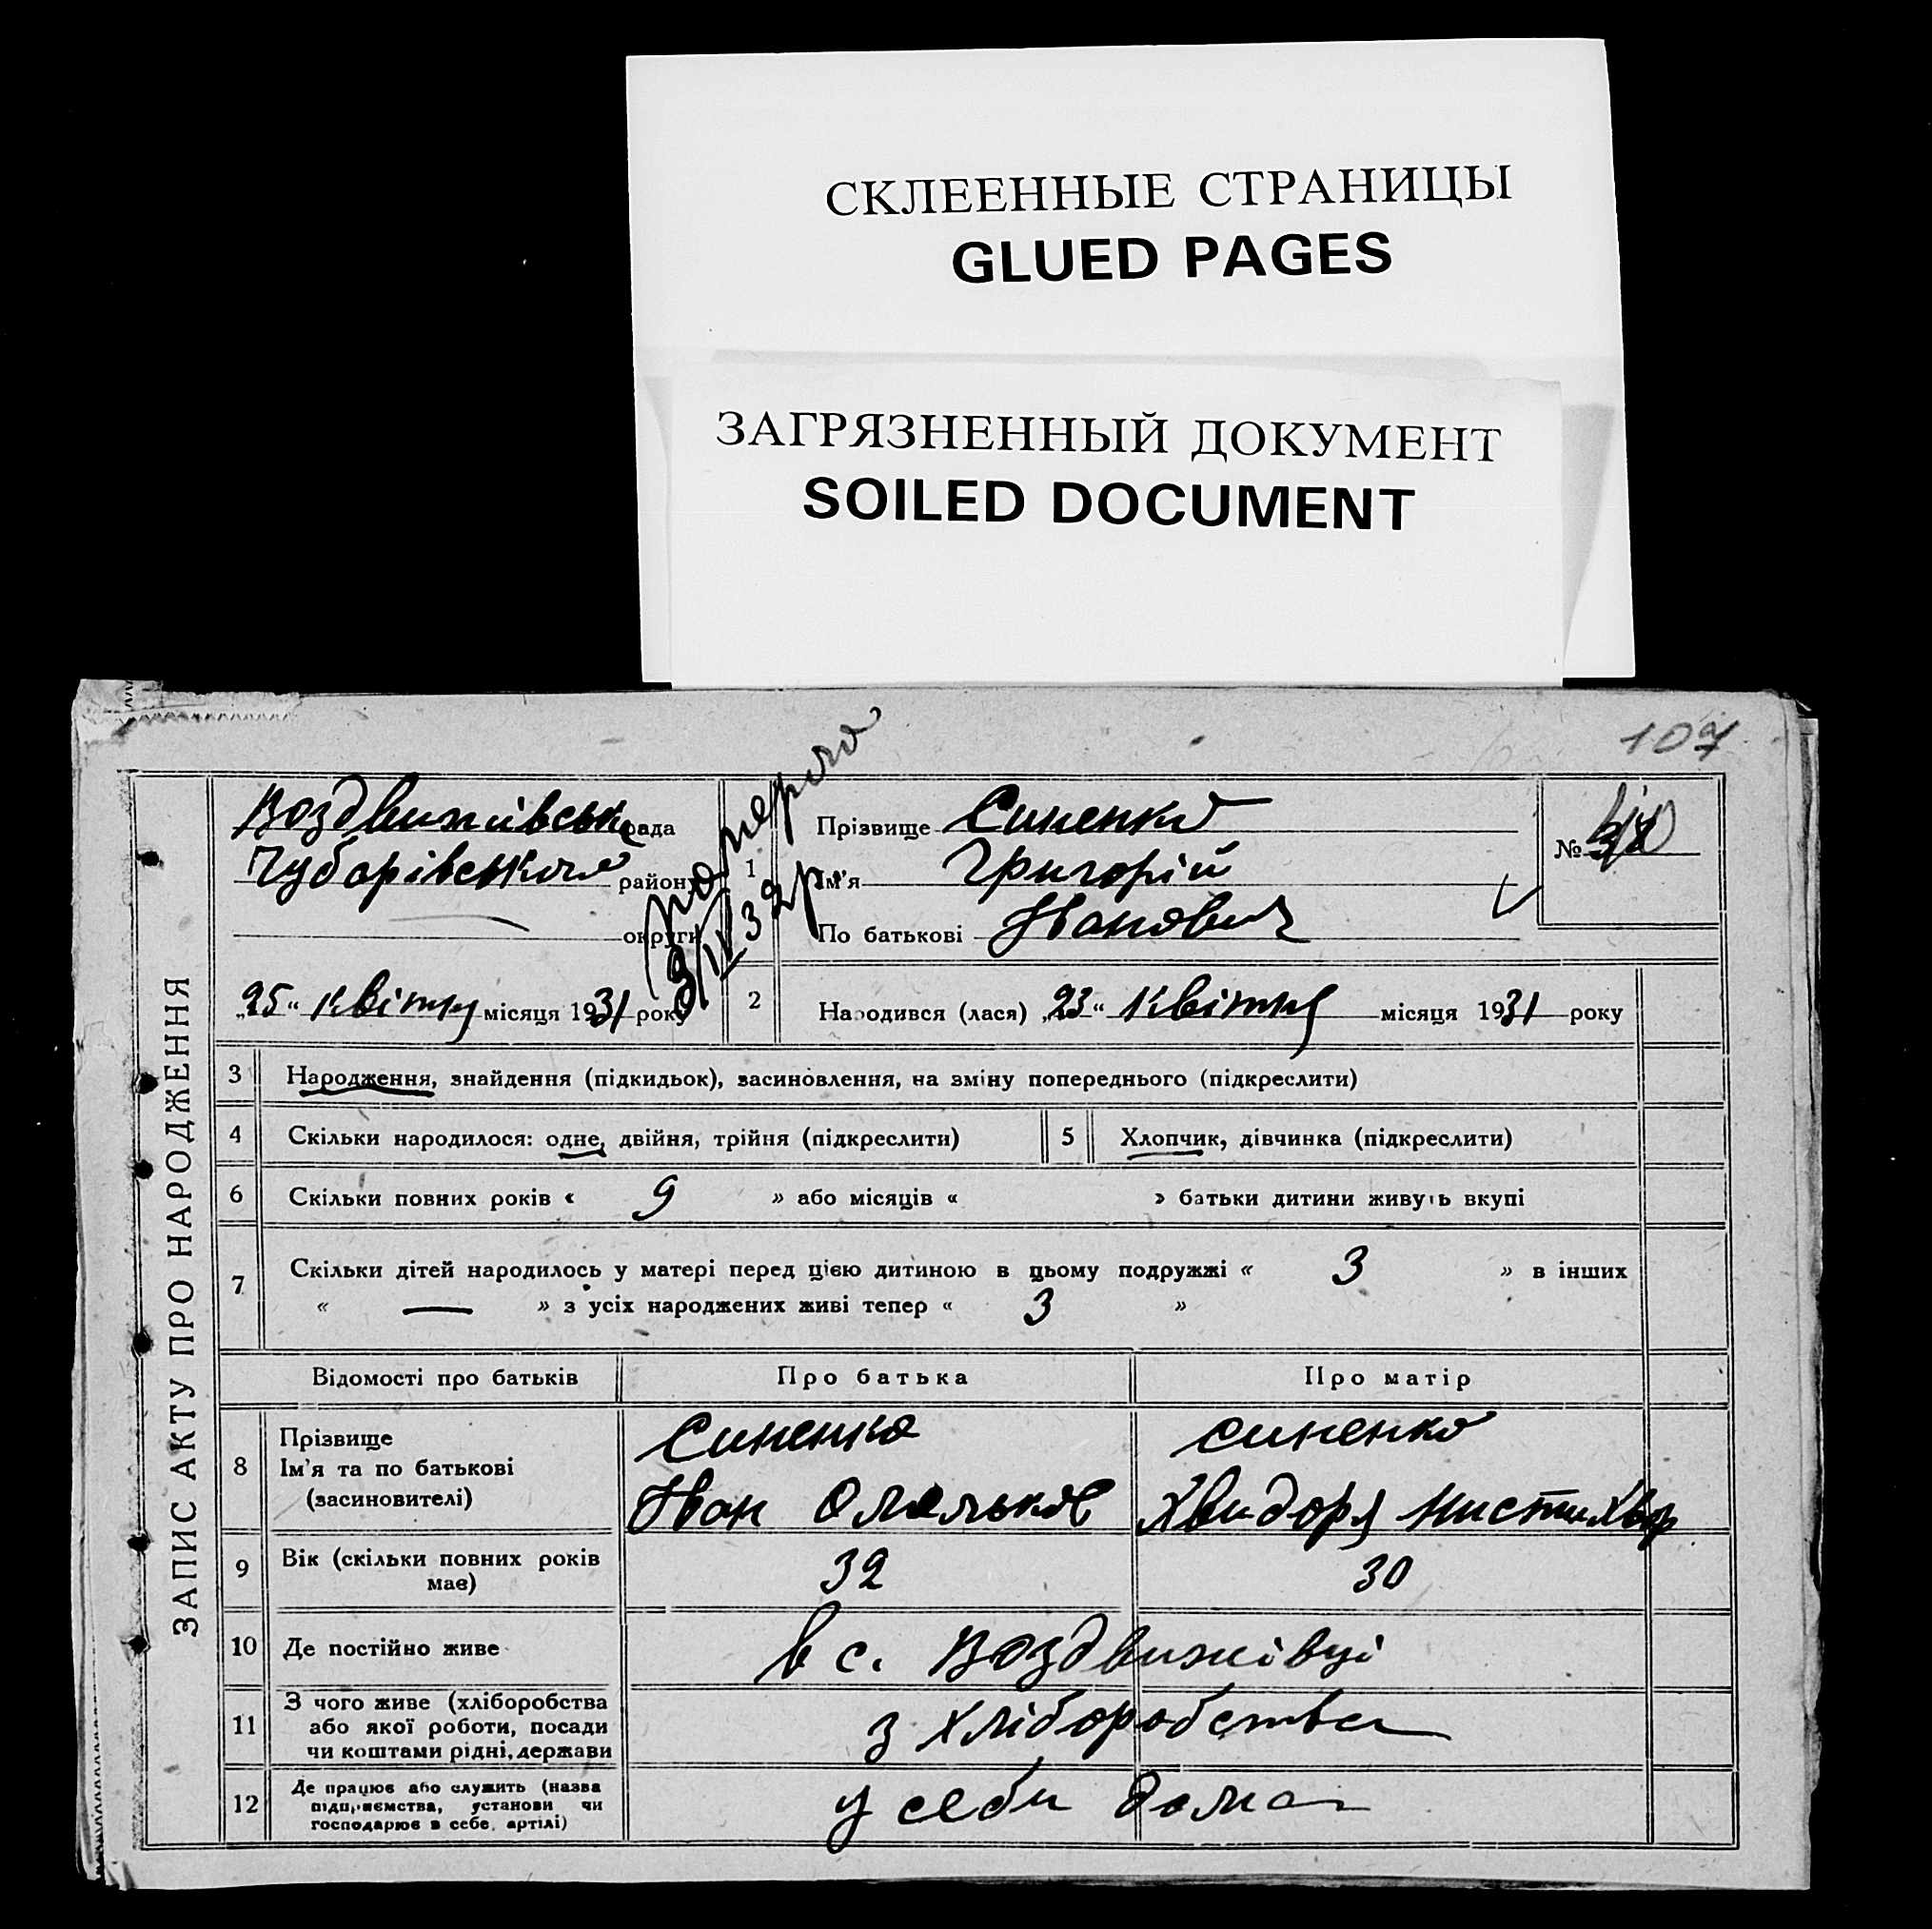 СКЛЕЕННЫЕ СТРАНИЦЫ
GLUED PAGES
ЗАГРЯЗНЕННЫЙ ДОКУМЕНТ
SOILED DOCUMENT
107
ЗАПИС АКТУ ПРО НАРОДЖЕННЯ
Воздвижівська рада
Чубарівського району
округи
"25" квітня місяця 1931 року
померло
9/IV 32 р.
1
Прізвище Синенко
Ім'я Григорій
По батькові Иванович
№
2 Народився (лася) "23" квітня місяця 1931 року
3 Народження, знайдення (підкидьок), засиновлення, на зміну попереднього (підкреслити)
4 Скільки народилося: одне, двійня, трійня (підкреслити) 5 Хлопчик, дівчинка (підкреслити)
6 Скільки повних років « 9 » або місяців « » батьки дитини живуть вкупі
7 Скільки дітей народилось у матері перед цією дитиною в цьому подружжі « 3 » в інших
« — » з усіх народжених живі тепер « 3 »
Відомості про батьків Про батька Про матір
8 Прізвище Синенко синенко
Ім'я та по батькові
(засиновителі) Иван Омельков Хвидоря Нистихвор
9 Вік (скільки повних років 32 30
має)
10 Де постійно живе в с. Воздвижівці
11 З чого живе (хліборобства
або якої роботи, посади з хліборобства
чи коштами рідні, держави
12 Де працює або служить (назва
підприємства, установи чи у себи дома
господарює в себе, артілі)